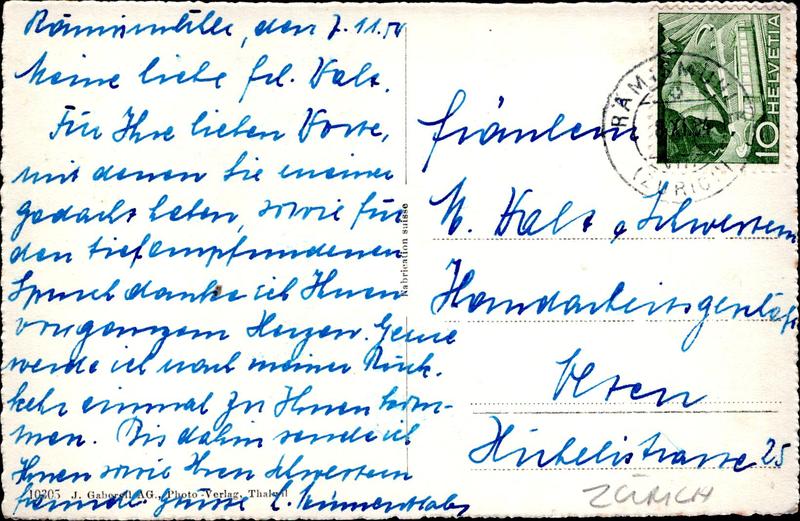 Rämismühle, den 7.11.54
Meine liebe Frl. Walz.
Für Ihre lieben Worte,
mit denen Sie meiner
gedacht haben, sowie für
den tiefempfundenen
Spruch danke ich Ihnen
von ganzem Herzen. Gerne
werde ich nach meiner Rück-
kehr einmal zu Ihnen kom-
men. Bis dahin sende ich
Ihnen sowie Ihren Schwestern
freundl. Grüsse
10205 J. Gaberell AG., Photo-Verlag, Thalwil
Fabrication suisse
HELVETIA
10
RÄMISMÜHLE
(ZÜRICH)
Fräulein
M. Walz & Schwestern
Handarbeitsgeschäft
Olten
Hübelistrasse 25
ZÜRICH